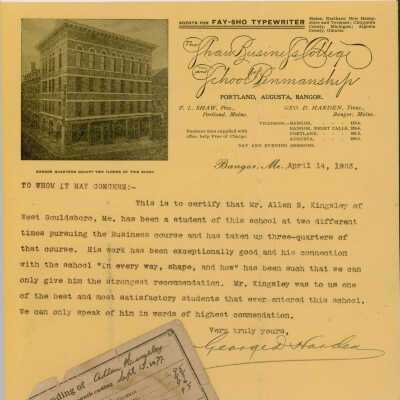 AGENTS FOR FAY-SHO TYPEWRITER
Maine, Northern New Hamp-
shire and Vermont; Chippewa
County, Michigan; Algoma
County, Ontario.
The Shaw Business College
and School of Penmanship
PORTLAND, AUGUSTA, BANGOR.
F. L. SHAW, Pres.,
Portland, Maine.
GEO. D. HARDEN, Treas.,
Bangor, Maine.
Business men supplied with
office help Free of Charge.
TELEPHONE—BANGOR,
BANGOR, NIGHT CALLS,
PORTLAND,
AUGUSTA,
DAY AND EVENING SESSIONS.
BANGOR QUARTERS OCCUPY TWO FLOORS OF THIS BLOCK
Bangor, Me. April 14, 1903.
TO WHOM IT MAY CONCERN:-
This is to certify that Mr. Allen S. Kingsley of
West Gouldsboro, Me. has been a student of this school at two different
times pursuing the Business course and has taken up three-quarters of
that course. His work has been exceptionally good and his connection
with the school "in every way, shape, and how" has been such that we can
only give him the strongest recommendation. Mr. Kingsley was to us one
of the best and most satisfactory students that ever entered this school.
We can only speak of him in words of highest commendation.
Very truly yours,
George D. Harden
ding of Allen Kingsley